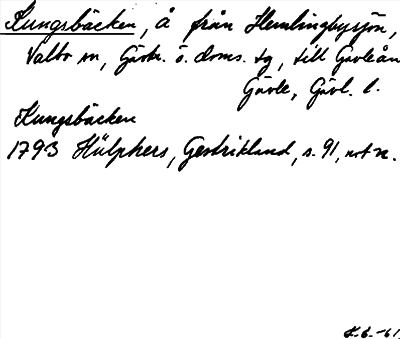 Kungsbäcken, å från Hemlingbysjön,
Valbo sn, Gävle. ö. doms. tg, till Gavleån
Gävle, Gävl. l.
Kungsbäcken
1793 Hülphers, Gestrikland, s. 91, not n.